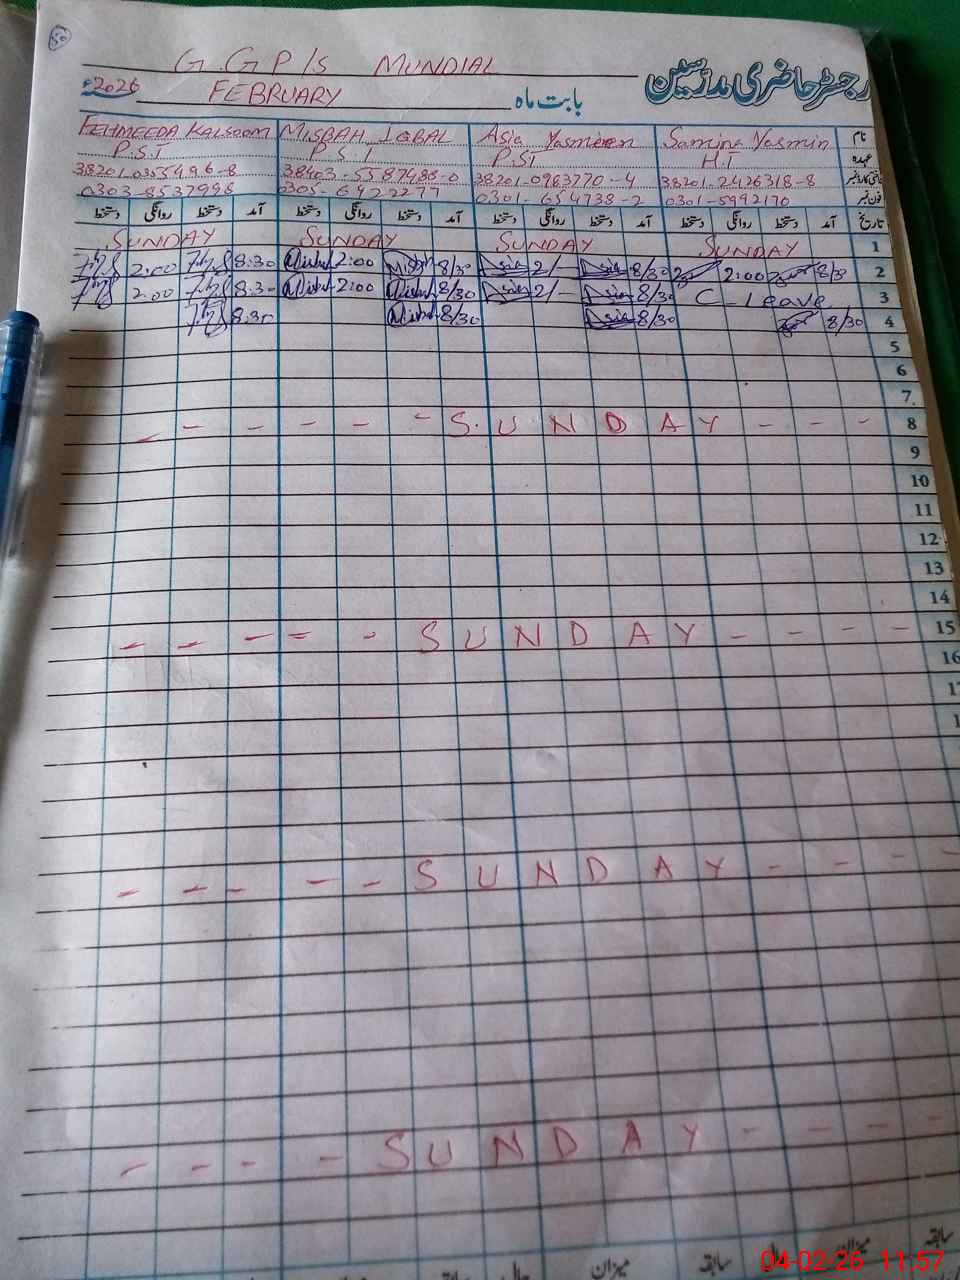 50
G.GP/S MUNDIAL رجسٹر حاضری مدرسین
بابت ماہ FEBRUARY 2026ء
FEHMEEDA KALSOOM MISBAH IQBAL Asia Yasmeen Samina Yasmin نام
P.S.T P.S.T P.ST H.T عہدہ
38201-0355496-8 38403-5587488-0 38201-0963770-4 38201-2426318-8 شناختی کارڈ نمبر
0303-8537996 0305-6422277 0301-654738-2 0301-5992170 فون نمبر
تاریخ آمد دستخط روانگی دستخط آمد دستخط روانگی دستخط آمد دستخط روانگی دستخط آمد دستخط روانگی دستخط
SUNDAY SUNDAY SUNDAY SUNDAY 1
2:00 8:30 Misbah 2:00 Misbah 8/30 Asia 2/- Asia 8/30 2:00 8/30 2
2:00 8:30 Misbah 2:00 Misbah 8/30 Asia 2/- Asia 8/30 C - Leave 3
8:30 Misbah 8/30 Asia 8/30 8/30 4
5
6
7
- - - - - - S U N D A Y - - - 8
9
10
11
12
13
14
- - - - - S U N D A Y - - - - 15
16
- - - - - S U N D A Y - - - -
- - - - S U N D A Y - - - -
میزان سابقہ میزان سابقہ
04-02-26 11:57